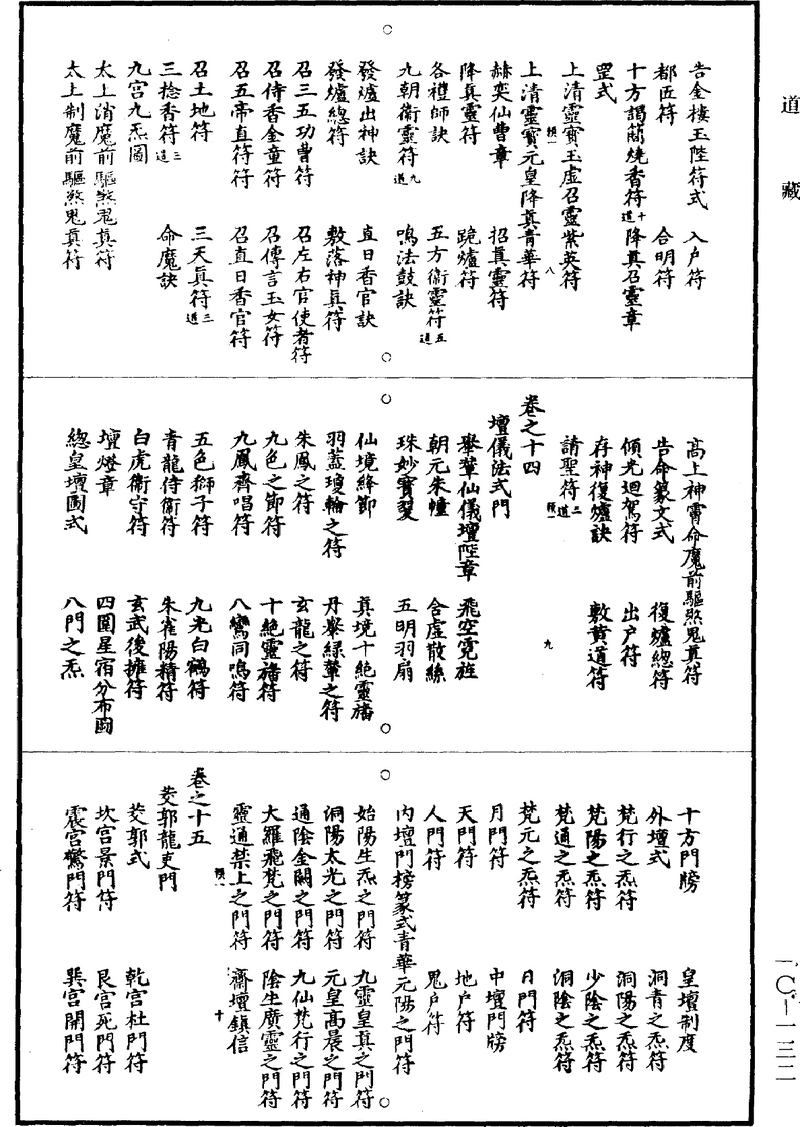 道藏
告金樓玉陛符式　入户符
都匠符　合明符
十方謁簡燒香符十道　降真召靈章
罡式
上清靈寶玉虛召靈紫英符
上清靈寶元皇降真青華符
赫奕仙曹章　招真靈符
降真靈符　跪爐符
各禮師訣　五方衞靈符五道
九朝衞靈符九道　鳴法鼓訣
發爐出神訣　直日香官訣
發爐總符　敷落神真符
召三五功曹符　召左右官使者符
召侍香金童符　召傳言玉女符
召五帝直符符　召直日香官符
召土地符　三天真符三道
三捻香符三道　命魔訣
九宫九炁圖
太上消魔前驅煞鬼真符
太上制魔前驅煞鬼真符
高上神霄命魔前驅煞鬼真符
告命篆文式　復爐總符
傾光迴駕符　出户符
存神復爐訣　敷黄道符
請聖符二道
卷之十四
壇儀法式門
舉輦仙儀壇陛章　飛空霓旌
朝元朱幢　含虛散絲
珠妙寶髮　五明羽扇
仙境絳節　真境十絕靈旛
羽蓋瓊輪之符　丹轝緑輦之符
朱鳳之符　玄龍之符
九色之節符　十絕靈旛符
九鳳齊唱符　八鸞同鳴符
五色獅子符　九光白鶴符
青龍侍衞符　朱雀陽精符
白虎衞守符　玄武後擁符
壇燈章　四圍星宿分布圖
總皇壇圖式　八門之炁
十方門牓　皇壇制度
外壇式　洞青之炁符
梵行之炁符　洞陽之炁符
梵陽之炁符　少陰之炁符
梵通之炁符　洞陰之炁符
梵元之炁符
月門符　日門符
天門符　中壇門牓
人門符　地户符
內壇門榜篆式　鬼户符
青華元陽之門符
始陽生炁之門符　九靈皇真之門符
洞陽太光之門符　元皇高晨之門符
通陰金闕之門符　九仙梵行之門符
大羅飛梵之門符　陰生廣靈之門符
靈通禁上之門符　齋壇鎮信
卷之十五
茭郭龍吏門
茭郭式　乾宫杜門符
坎宫景門符　艮宫死門符
震宫驚門符　巽宫開門符
一〇—一三二